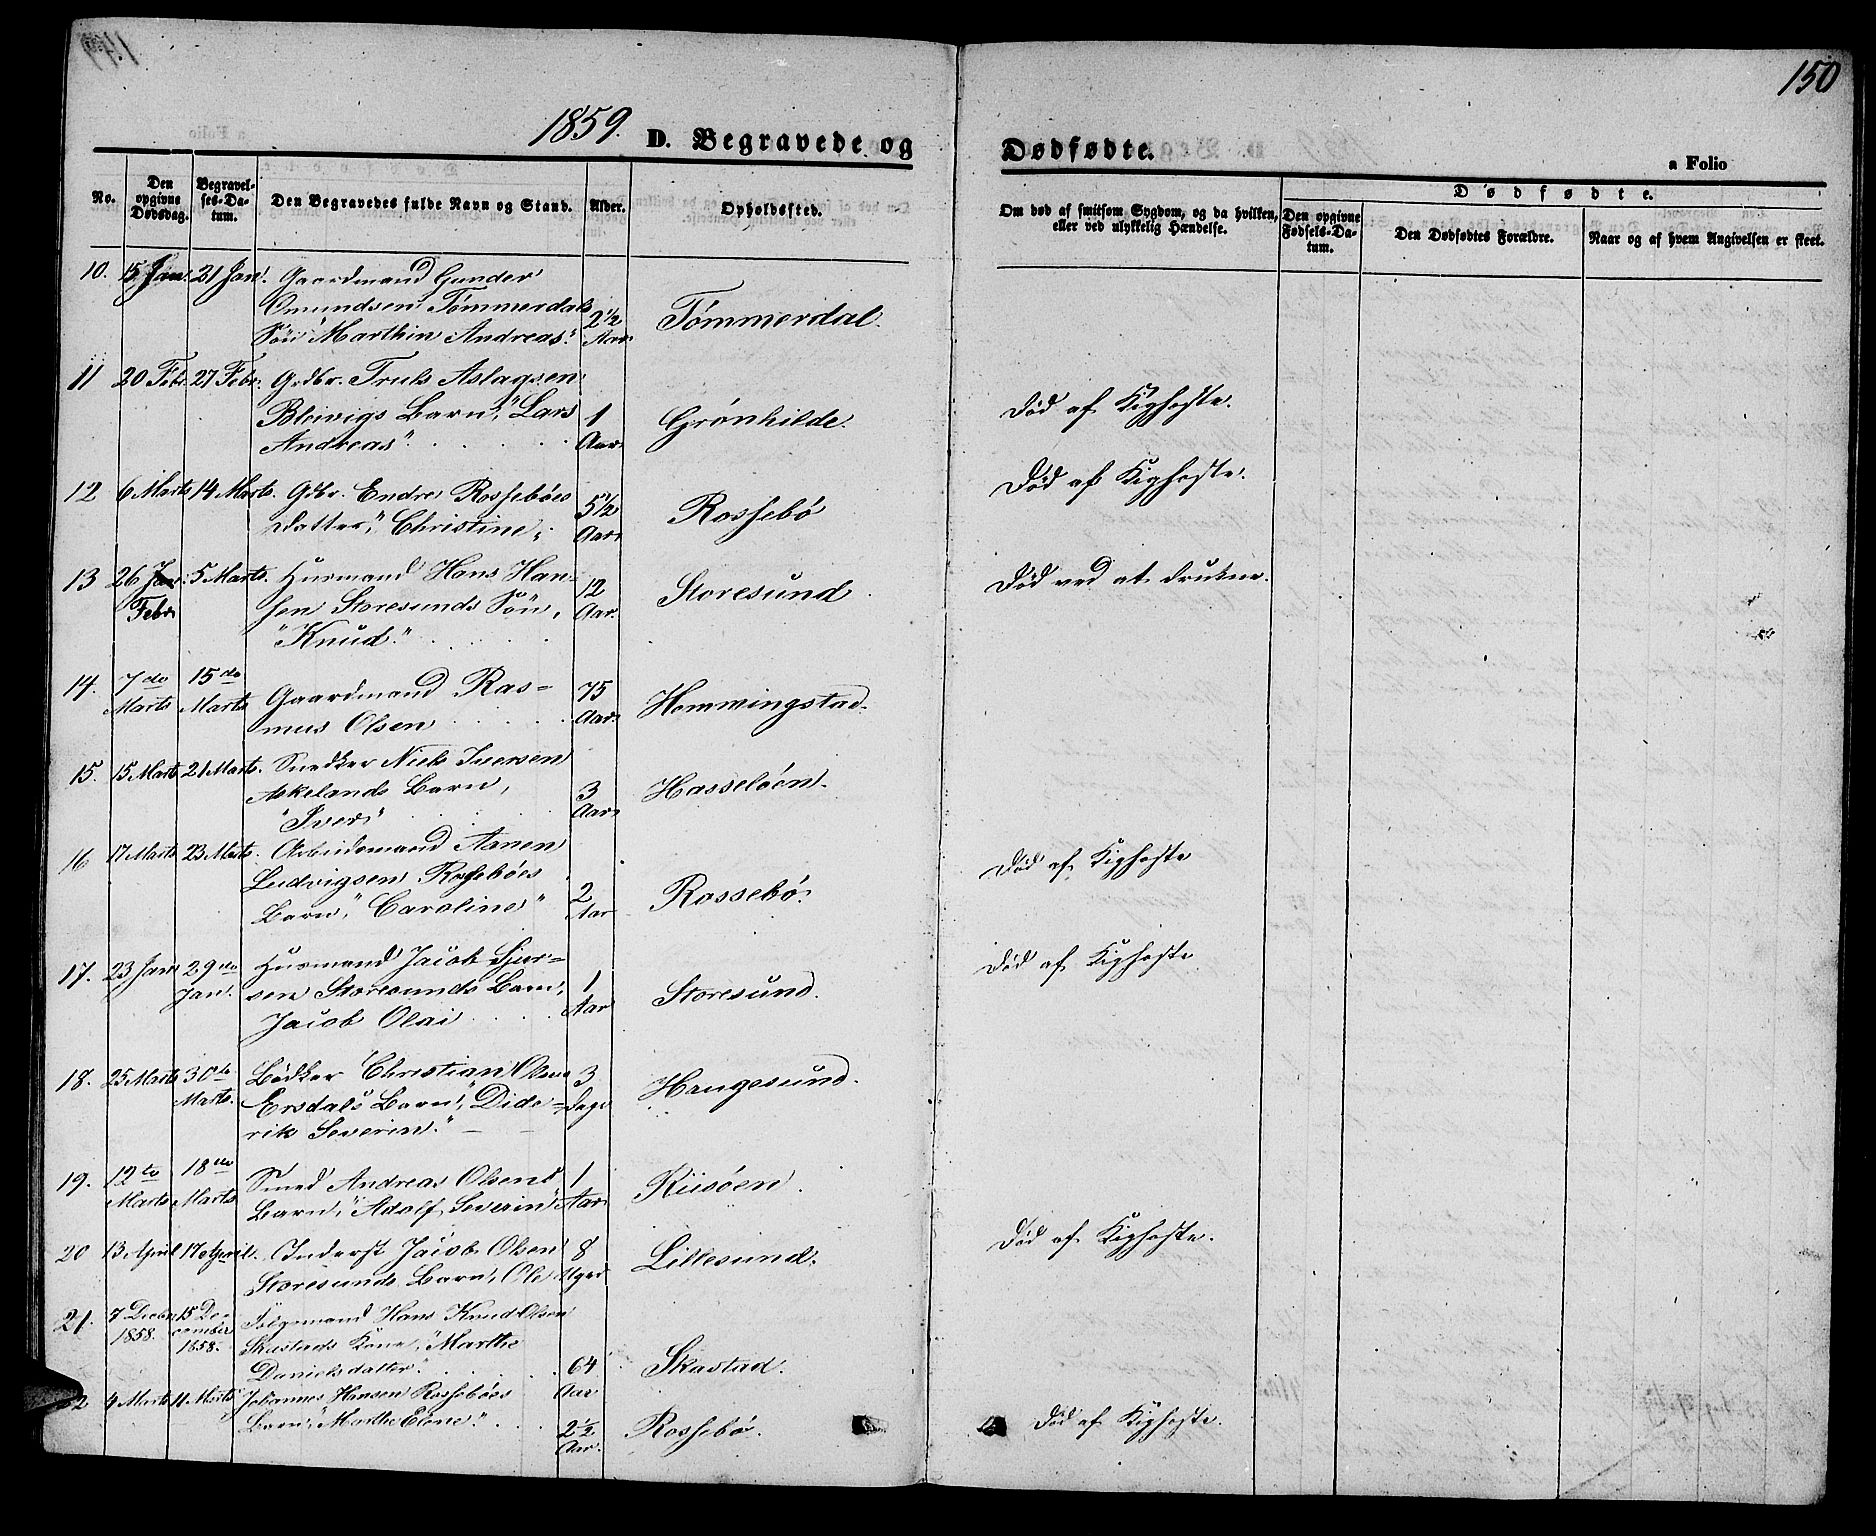 150
1859. D. Begravede og Dødfødte.
a Folio
No.
Den opgivne Dødsdag.
Begravelses-Datum.
Den Begravedes fulde Navn og Stand.
Alder.
Opholdssted.
Om død af smitsom Sygdom, og da hvilken, eller ved ulykkelig Hændelse.
Dødfødte.
Den opgivne Fødsels-Datum.
Den Dødfødtes Forældre.
Naar og af hvem Angivelsen er skeet.
10. 15 Jan. 21 Jan. Gaardmand Gunder
Omundsen Tømmerdals
Søn "Marthin Andreas." 2 1/2 Aar Tømmerdal.
11 20 Febr. 27 Febr. Grdbr. Truls Aslagsen
Bleivigs Barn, "Lars
Andreas" 1 Aar Grønhilde. Død af Kighoste.
12 6 Marts 14 Marts. Gdbr. Endre Rossebøes
Datter, "Christine" 5 1/2 Aar Rossebö Død af Kighoste.
13 26 Jan. Febr. 5 Marts. Husmand Hans Han-
sen Storesunds Søn,
"Knud." 12 Aar. Storesund Død ved at drukne.
14. 7de Marts 15de Marts Gaardmand Ras-
mus Olsen 75 Aar. Hemmingstad.
15. 15 Marts 21 Marts. Snedker Niels Iversen
Askelands Barn,
"Iver" 3 Aar Hasseløen.
16 17 Marts 23 Marts. Arbeidsmand Aanen
Ludvigsen Rossebøes
Barn, "Caroline" 2 Aar Rossebö. Død af Kighoste
17. 23 Jan. 29de Jan. Husmand Jacob
Storesunds Barn,
Jacob Olai 1 Aar Storesund. Død af Kighoste
18. 25 Marts 30te Marts. Bödker Christian Olsen
Ersdals Barn, "Dide-
rik Severin." 3 Dage Haugesund.
19. 12te Marts 18de Marts Smed Andreas Olsens
Barn, "Adolf Severin" 1 Aar Riisøen.
20 13 April 17 April. Inderst Jacob Olsen
Storesunds Barn, Ole 8 Uger Lillesund. Død af Kighoste.
21. 7 Decbr. 1858. 15 December 1858. Følgemand Hans Knud Olsen
Skastads Kone, "Marthe
Danielsdatter". 64 Aar Skastad.
2 4 Marts 11 Marts Johannes Hansen Rossebøes
Barn, "Marthe Elene." 2 1/2 Aar. Rossebö. Død af Kighoste.